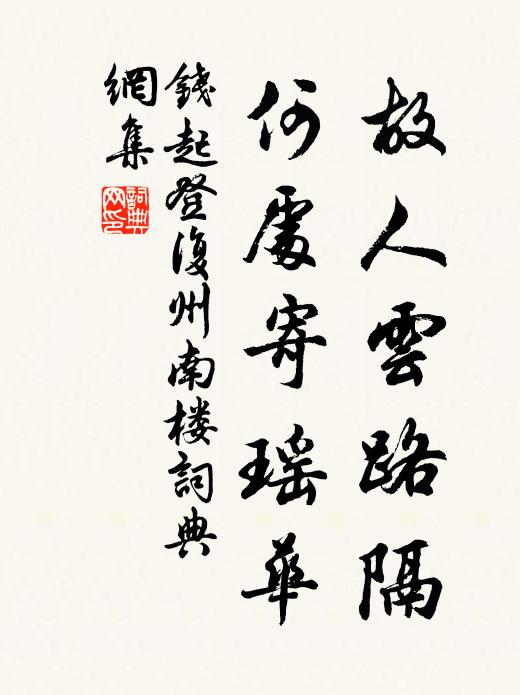 故人雲路隔
何處寄瑶華
錢起登復州南楼詞典
網集
詞典網印